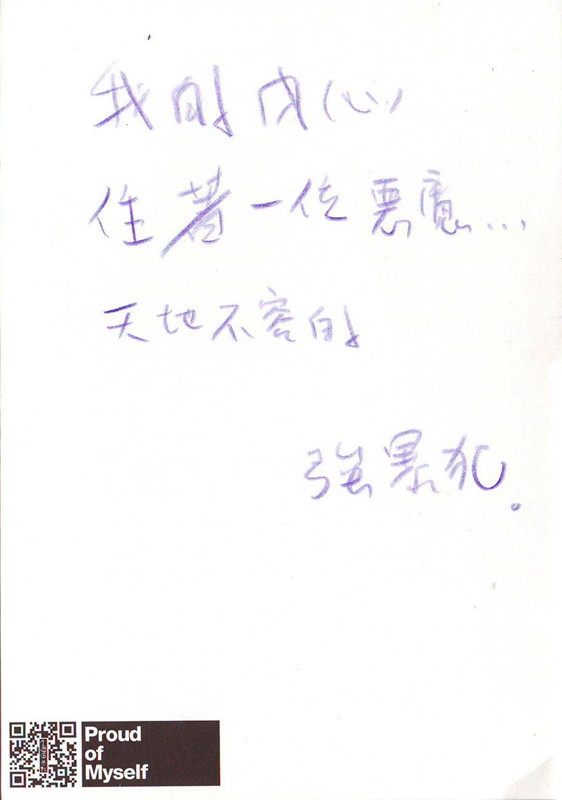 我的內心
住著一位惡魔...
天地不容的
強暴犯。
Proud
of
Myself